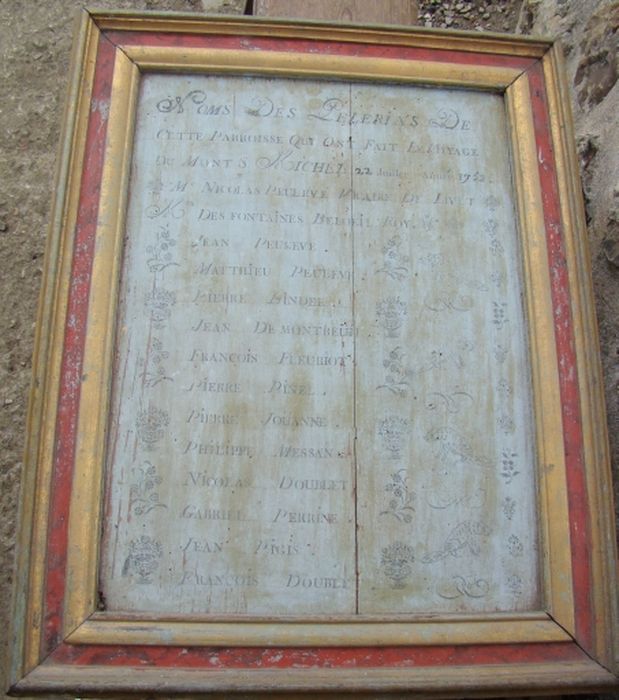 Noms Des Pelerins De
Cette Parroisse Qui Ont Fait Le Voyage
Du Mont S Michel 22 Juillet 
Mr Nicolas Peuleve Vicaire De Livet
Mr Des Fontaines Beloeil Roy
Jean Peuleve
Matthieu Peuleve
Pierre
Jean De Montreuil
François Fleuriot
Pierre Pinel
Pierre Jouanne
Philippe Messan
Nicolas Doublet
Gabriel Perrine
Jean Pigis
François Doublet